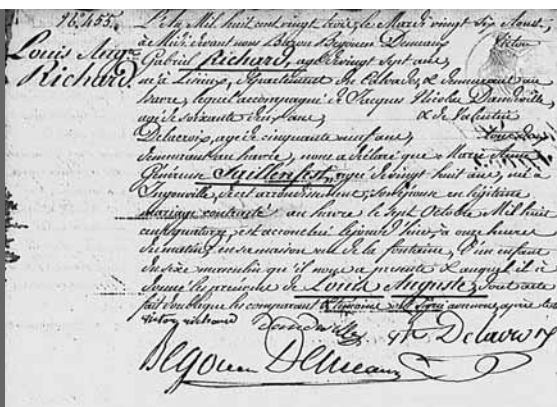 16.455.
Louis Aug.te
Richard.
L'an Mil huit cent vingt trois le Mardi vingt six Aoust,
à Midi devant nous Begouen Demeaux Victor
Gabriel Richard, agé de vingt sept ans,
né à Lisieux, département du Calvados, & demeurant au
havre, lequel accompagné de Jacques Nicolas
agé de soixante deux ans, & de Valentin
Delacroix, agé de cinquante neuf ans, tous deux
demeurant au havre, nous a déclaré que Marie Anne
Génereuse Taillenfest, agée de vingt huit ans, née à
Ingouville de cet arrondissement, son épouse en légitime
mariage contracté au havre le sept Octobre Mil huit
cent quatorze, est accouchée le jour d'hier, à onze heures
du matin, en sa maison rue de la fontaine, d'un enfant
du sexe masculin qu'il nous a presenté & auquel il a
donné les prenoms de Louis Auguste, dont acte
fait double que les comparant & témoins ont signé avec nous, après lecture
victor richard Delacroix
Begouen Demeaux